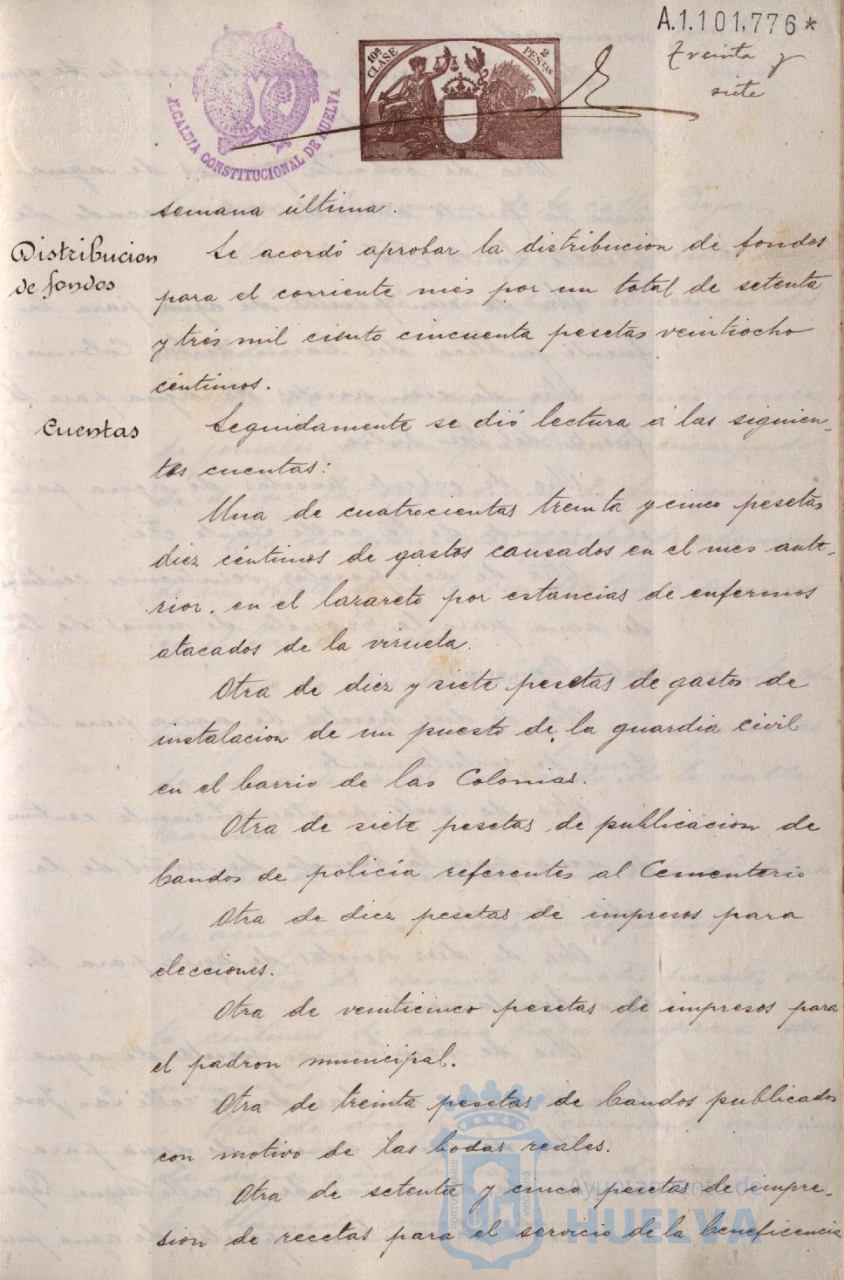 A.1.101,776*
treinta y
siete
10ª CLASE
2 PESTAS
ALCALDIA CONSTITUCIONAL DE HUELVA
semana última.
Distribucion
de fondos
Se acordó aprobar la distribucion de fondos
para el corriente més por un total de setenta
y trés mil ciento cincuenta pesetas veintiocho
céntimos.
Cuentas
Seguidamente se dió lectura á las siguien-
tes cuentas:
Una de cuatrocientas treinta y cinco pesetas
diez céntimos de gastos causados en el mes ante-
rior. en el lazareto por estancias de enfermos
atacados de la viruela.
Otra de diez y siete pesetas de gastos de
instalacion de un puesto de la guardia civil
en el barrio de las Colonias.
Otra de siete pesetas de publicacion de
bandos de policía referentes al Cementerio
Otra de diez pesetas de impresos para
elecciones.
Otra de veinticinco pesetas de impresos para
el padron municipal.
Otra de treinta pesetas de bandos publicados
con motivo de las bodas reales.
Otra de setenta y cinco pesetas de impre-
sion de recetas para el servicio de la beneficencia
Ayuntamiento de
HUELVA